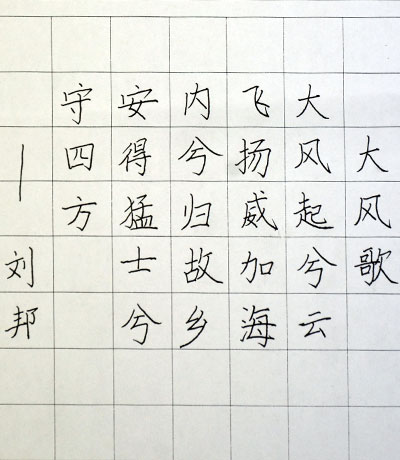 大风歌
大风起兮云
飞扬威加海
内兮归故乡
安得猛士兮
守四方
—刘邦